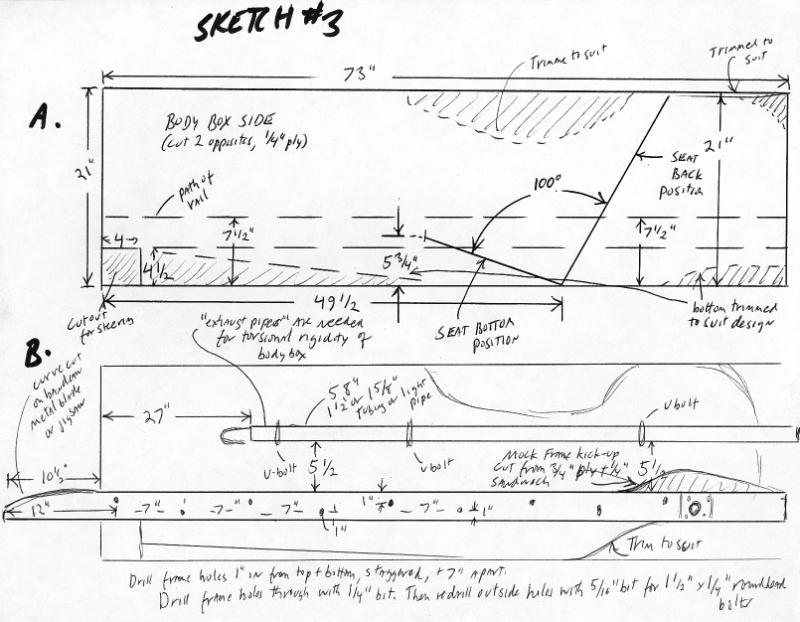 SKETCH #3
Trimme to suit
Trimmed to
suit
73"
A.
BODY BOX SIDE
(cut 2 opposites, 1/4" ply)
21"
21"
100°
SEAT
BACK
POSITION
path of
rail
4
7 1/2"
7 1/2"
4 1/2
5 3/4"
49 1/2
SEAT BOTTOM
POSITION
bottom trimmed
to suit design
Cutout
for steering
"exhaust pipes" are needed
for torsional rigidity of
body box
B.
curve cut
on bandsaw
metal blade
or jigsaw
27"
58"
1 1/2 or 1 5/8"
tubing or light
pipe
U bolt
U-bolt
U bolt
5 1/2
Mock frame kick-up
cut from 3/4" ply + 1/4"
sandwich
5 1/2
10 1/2"
12"
7"
7"
7"
7"
1"
1"
1"
Trim to suit
Drill frame holes 1" in from top + bottom, staggered, + 7" apart.
Drill frame holes through with 1/4" bit. Then redrill outside holes with 5/16" bit for 1 1/2" x 1/4" roundhead
bolts